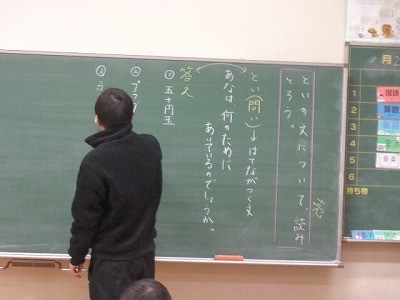 といの文について、読み
とろう。
とい(問い)→はてながつく文
あなは、何のために
あいているのでしょうか。
答え
① 五十円玉
② プラ
③ う
月
1 国語
2 算数
3
4
5 音楽
6
持ち物